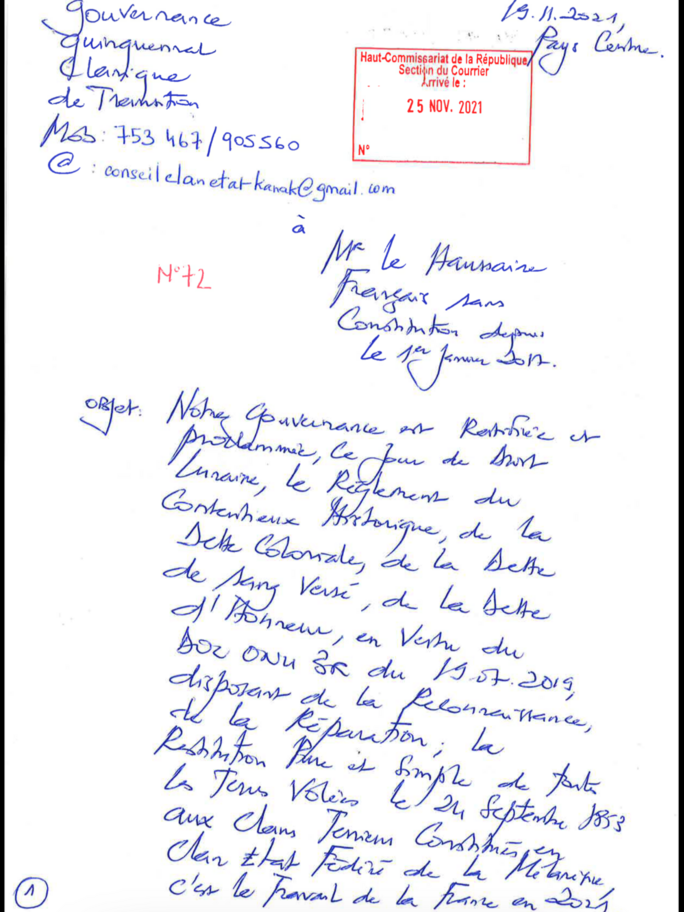 Gouvernance
Quinquennal
Clanique
de Transition
Mob: 753 467/905560
@ : conseilclanetat-kanak@gmail.com
19.11.2021,
Pays Centre.
Haut-Commissariat de la République
Section du Courrier
Arrivé le :
25 NOV. 2021
N°
à
N°72
Mr le Haussaire
Français sans
Constitution depuis
le 1er Janvier 2017.
Objet: Notre Gouvernance est Ratifiée et
proclammée, ce jour de
Lunaire, le Règlement du
Contentieux Historique, de la
Dette Coloniale, de la Dette
de Sang Versé, de la Dette
d'Honneur, en Vertu du
ONU du 19.07.2019,
disposant de la Reconnaissance,
de la Réparation; la
Restitution Pure et Simple de toute
les Terres Volées le 24 Septembre 1853
aux Clans Terriens Constitués en
Clan Etat Fédéré de la Mélanésie,
c'est le Travail de la France en 2021
1